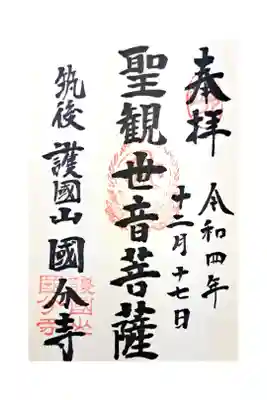 奉拝
令和四年
十二月十七日
聖観世音菩薩
筑後 護國山 國分寺